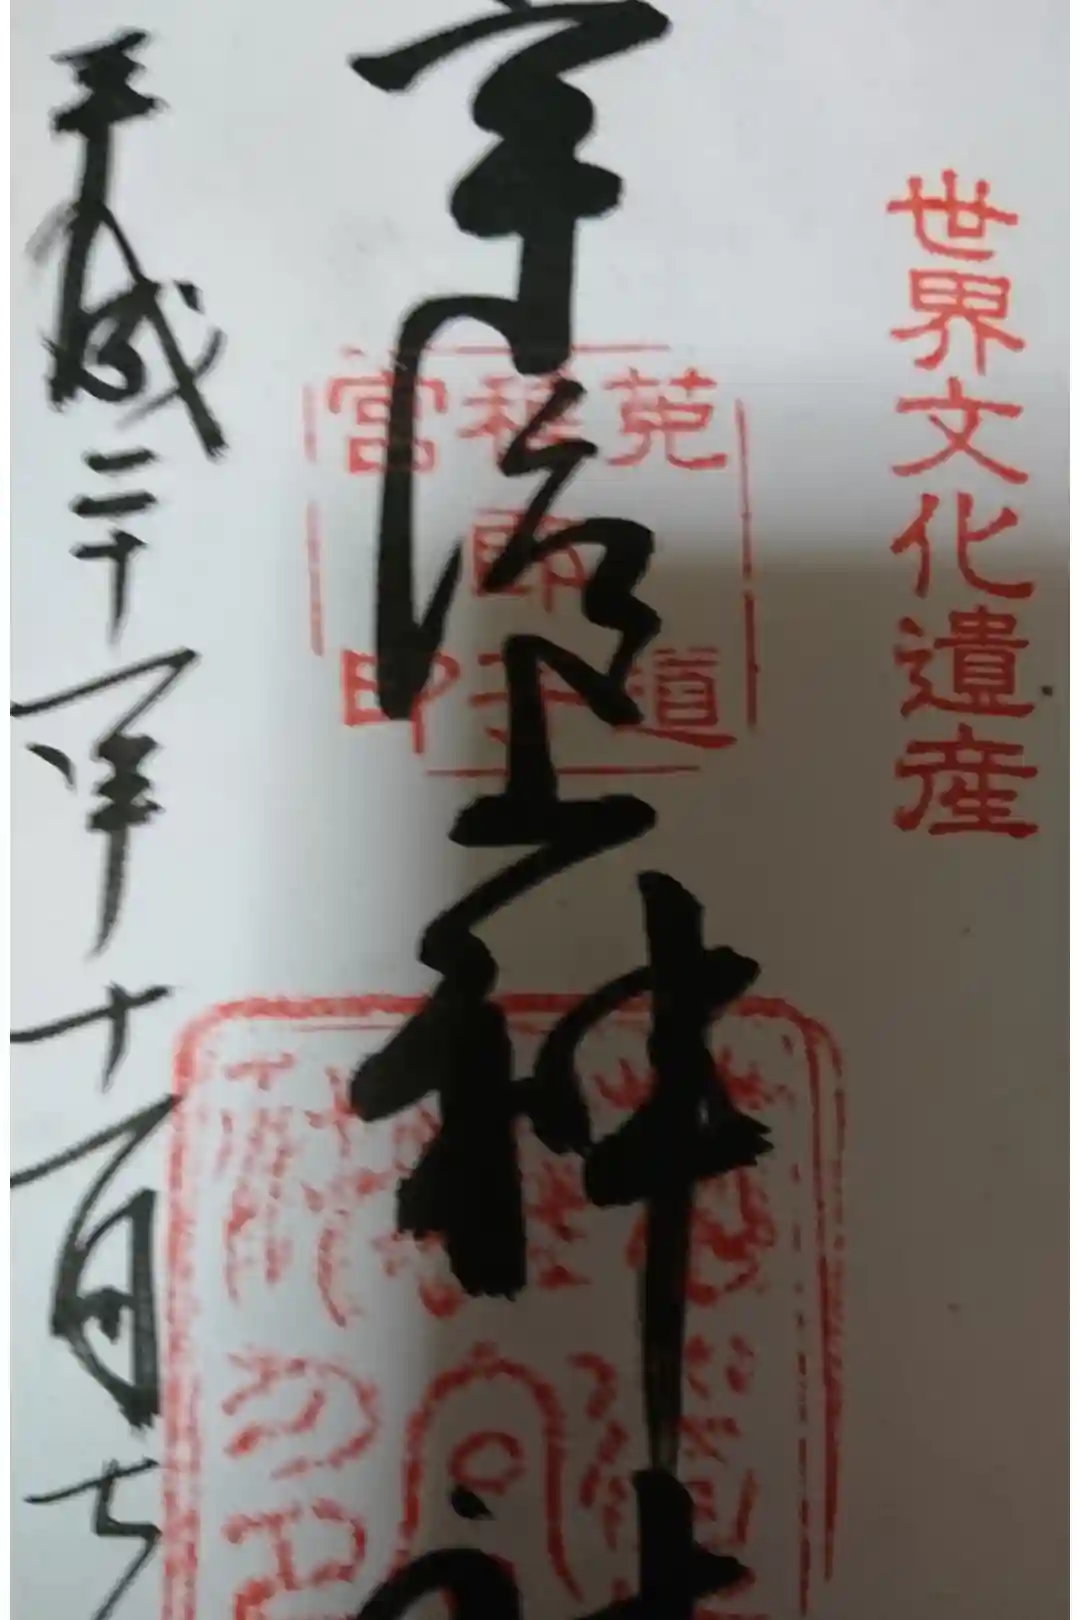 世界文化遺産
宇治上神社
菟道
稚郎子
宮印
平成二十年十月七